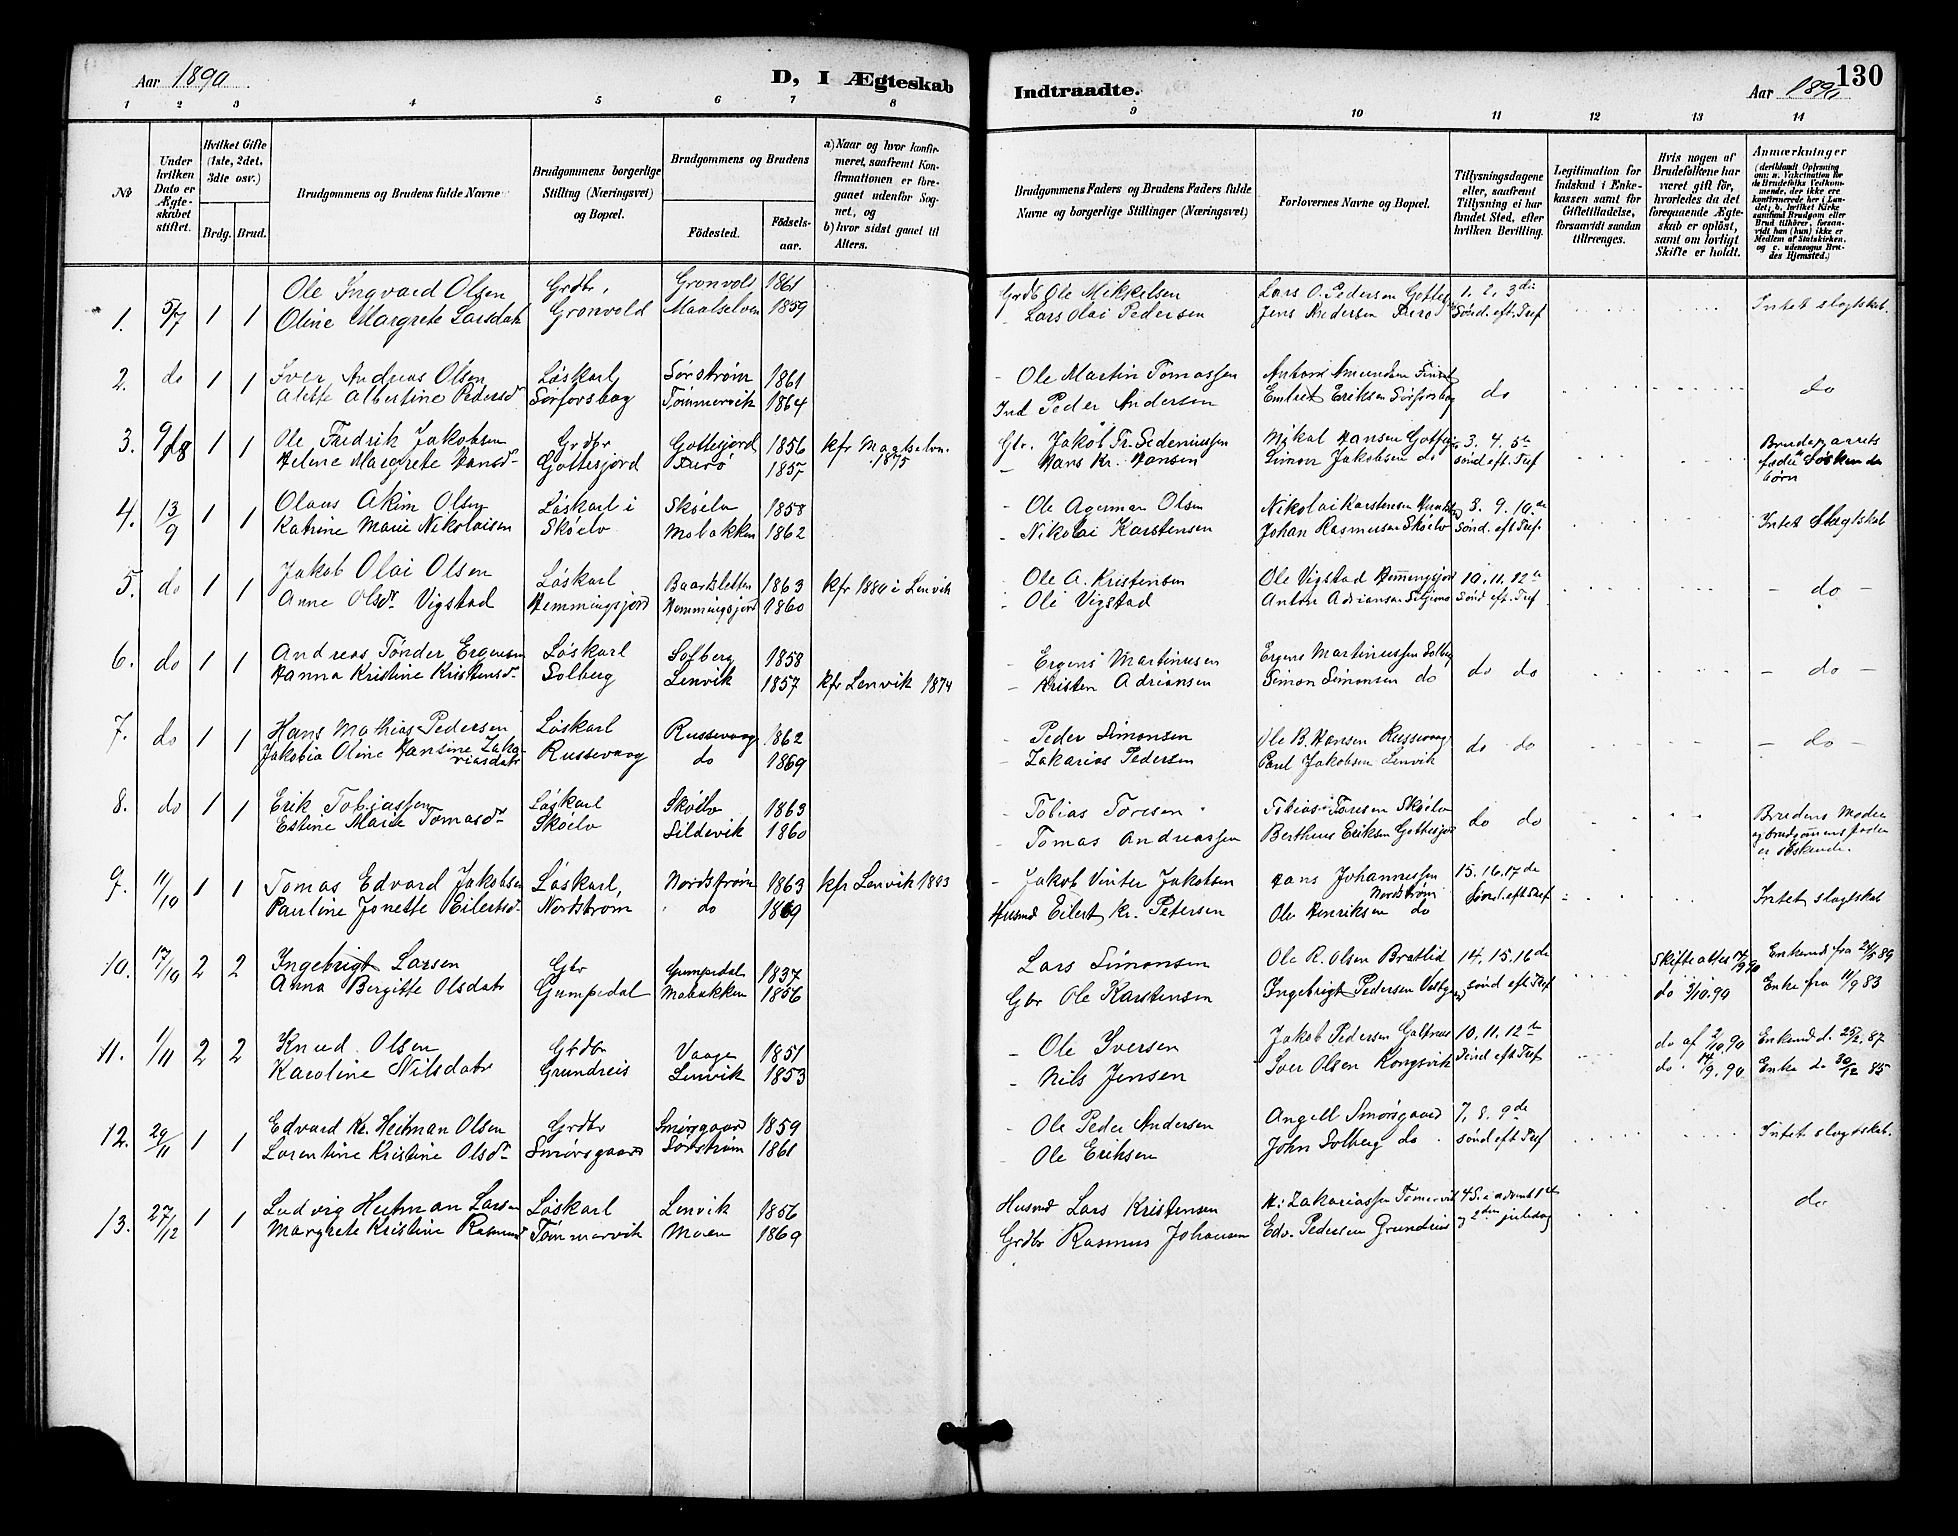 Aar 1890
D, I Ægteskab
Indtraadte.
Aar 1890
130
1 2 3 4 5 6 7 8
9 10 11 12 13 14
No
Under hvilken Dato er Ægteskabet stiftet.
Hvilket Gifte (1ste, 2det, 3die osv.)
Brdg. Brud.
Brudgommens og Brudens fulde Navne
Brudgommens borgerlige Stilling (Næringsvei) og Bopæl.
Brudgommens og Brudens
Fødested.
Fødselsaar.
a) Naar og hvor konfirmeret, saafremt Konfirmationen er foregaaet udenfor Sognet, og
b) hvor sidst gaaet til Alters.
Brudgommens Faders og Brudens Faders fulde Navne og borgerlige Stillinger (Næringsvei)
Forlovernes Navne og Bopæl.
Tillysningsdagene eller, saafremt Tillysning ei har fundet Sted, efter hvilken Bevilling.
Legitimation for Indskud i Enkekassen samt for Giftetilladelse, forsaavidt saadan tiltrænges.
Hvis nogen af Brudefolkene har været gift før, hvorledes da det foregaaende Ægteskab er opløst, samt om lovligt Skifte er holdt.
Anmærkninger
(deriblandt Oplysning om: a. Vakcination for de Brudefolks Vedkommende, der ikke ere konfirmerede her i Landet; b. hvilket Kirkesamfund Brudgom eller Brud tilhører, forsaavidt han (hun) ikke er Medlem af Statskirken, og c. udensogns Brudes Hjemsted.)
1. 5/7 1 1 Ole Ingvard Olsen Grdbr, Grønvold 1861 Grdb Ole Mikkelsen Lars O. Pedersen 1. 2. 3die Intet slægtskab.
Oline Margrete Larsdatr Gronvold Maalselven 1859 - Lars Olai Pedersen Jens Pedersen Sønd. eft. Tref
2. do 1 1 Iver Andreas Olsen Løskarl Sørstrøm 1861 - Ole Martin Tomassen Anthon Amundsen do do
Alette Albertine Pedersdr Sørforsbog Tømmervik 1864 Ind Peder Andersen Eriksen
3. 1 1 Ole Fredrik Jakobsen Grdbr Gottesjord 1856 kfr Maalselven Gbr. Jakob Fr. Mikal Hansen 3. 4. 5te Brudeparrets
Helene Margrete Hansdr Gottesjord Furø 1857 1875 - Hans Kr. Hansen Simon Jakobsen do sønd eft. Tref fædre Søskende
børn
4. 13/9 1 1 Olaus Akim Olsen Løskarl i Skøelv 1858 - Ole Agerman Olsen Nikolai Karstensen 8. 9. 10de Intet Slægtskab
Katrine Marie Nikolaisen Skøelv Mobakken 1862 - Nikolai Karstensen Johan Rasmussen Skøelv Sønd. eft Tref.
5. do 1 1 Jakob Olai Olsen Løskarl Baardsletten 1863 kfr 1880 i Lenvik - Ole A. Kristensen Ole Vigstad Hemmingsjord 10. 11. 12te - do -
Anne Olsdr Vigstad Hemmingsjord Hemmingsjord 1860 - Ole Vigstad Anton Adriansen Sønd eft. Tref
6. do 1 1 Andreas Tønder Ergensen Løskarl Solberg 1858 - Ergens Martinusen Ergens Martinussen Solberg do do - do -
Hanna Kristine Kristensdr Solberg Lenvik 1857 kfr Lenvik 1874 - Kristen Adriansen Simon Simonsen do
7. do 1 1 Hans Mathias Pedersen Løskarl Russevaag 1862 - Peder Simonsen Ole B. Hansen Russevaag do do - do -
Jakobia Oline Hansine Zakariasdatr Russevaag do 1869 - Zakarias Pedersen Paul Jakobsen Lenvik
8. do 1 1 Erik Tobiassen Løskarl Skøelv 1863 - Tobias Toresen Tobias Toresen Skøelv do do Brudens Moder
Estine Marie Tomasdr Skøelv Sildevik 1860 Tomas Andreassen Bertheus Eriksen Gottesjord og brudgommens fader
er søskende.
9. 11/10 1 1 Tomas Edvard Jakobsen Løskarl, Nordstrøm 1863 kfr Lenvik 1883 - Jakob Vinter Jakobsen Hans Johannessen Nordstrøm 15. 16. 17de Intet slagtskab
Pauline Jonette Eilertsdr Nordstrøm do 1869 Husmd Eilert Kr. Petersen Ole Henriksen do Sønd. eft Tref
10. 17/10 2 2 Ingebrigt Larsen Gbr Gumpedal 1837 Lars Simonsen Ole R. Olsen Bratlid 14. 15. 16de Skifteattest Enkemd fra 24/5 89
Anna Bergitte Olsdatr Gumpedal Mobakken 1856 Gbr Ole Karstensen Ingebrigt Pedersen sønd eft Tref do 3/10.90 Enke fra 11/9 83
11. 1/11 2 2 Knud Olsen Grdbr Vaage 1851 - Ole Iversen Jakob Pedersen 10. 11. 12te do af 2/10.90 Enkemd d. 25/2. 87
Karoline Nilsdatr Grundreis Lenvik 1853 - Nils Jensen Iver Olsen Kongsvik Sønd eft Tref do 14/9.90 Enke do 30/12 85
12. 29/11 1 1 Edvard Kr. Heitman Olsen Grdbr Smørsgaard 1859 - Ole Peder Andersen Angell Smørsgaard 7. 8. 9de Intet slagtskab.
Lorentine Kristine Olsdr Smørsgaard Sørstrøm 1861 - Ole Eriksen John Solberg do sønd eft Tref
13. 27/12 1 1 Ludvig Heitman Larsen Løskarl Lenvik 1856 Husmd Lars Kristensen Zakariassen Tømervik 4 S. i advent 1ste do
Margrete Kristine Rasmusd Tømmervik Moen 1869 Grdbr Rasmus Johansen Edv. Pedersen Grundreis og 2den juledag